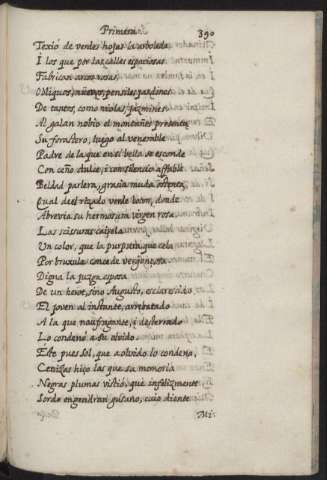 Primera. 390
Texiò de verdes hojas la arboleda
I los que por las calles espaciosas
Fabrican arcos, rosas,
Obliquos, nuevos, pensiles jardines
De tantos, como violas, jazmines.
Al galan nobio el montañes presenta
Su forastero; luego al venerable
Padre de la que en si bella se esconde
Con ceño dulce, i con silencio affable
Beldad parlera, gracia muda ostenta,
Qual del rizado verde boton, donde
Abrevia su hermosura virgen rosa
Las cisuras cairela
Un color, que la purpura que cela
Por brujula concede vergonçosa
Digna la juzga esposa
De un heroe, sino Augusto, esclarecido
El joven al instante, arrebatado
A la que naufragante, i desterrado
Lo condenò a su olvido.
Este pues Sol, que a olvido lo condena,
Cenizas hiço las que su memoria
Negras plumas vistiò, que infelizmente
Sordo engendran gusano, cuio diente
Mi-